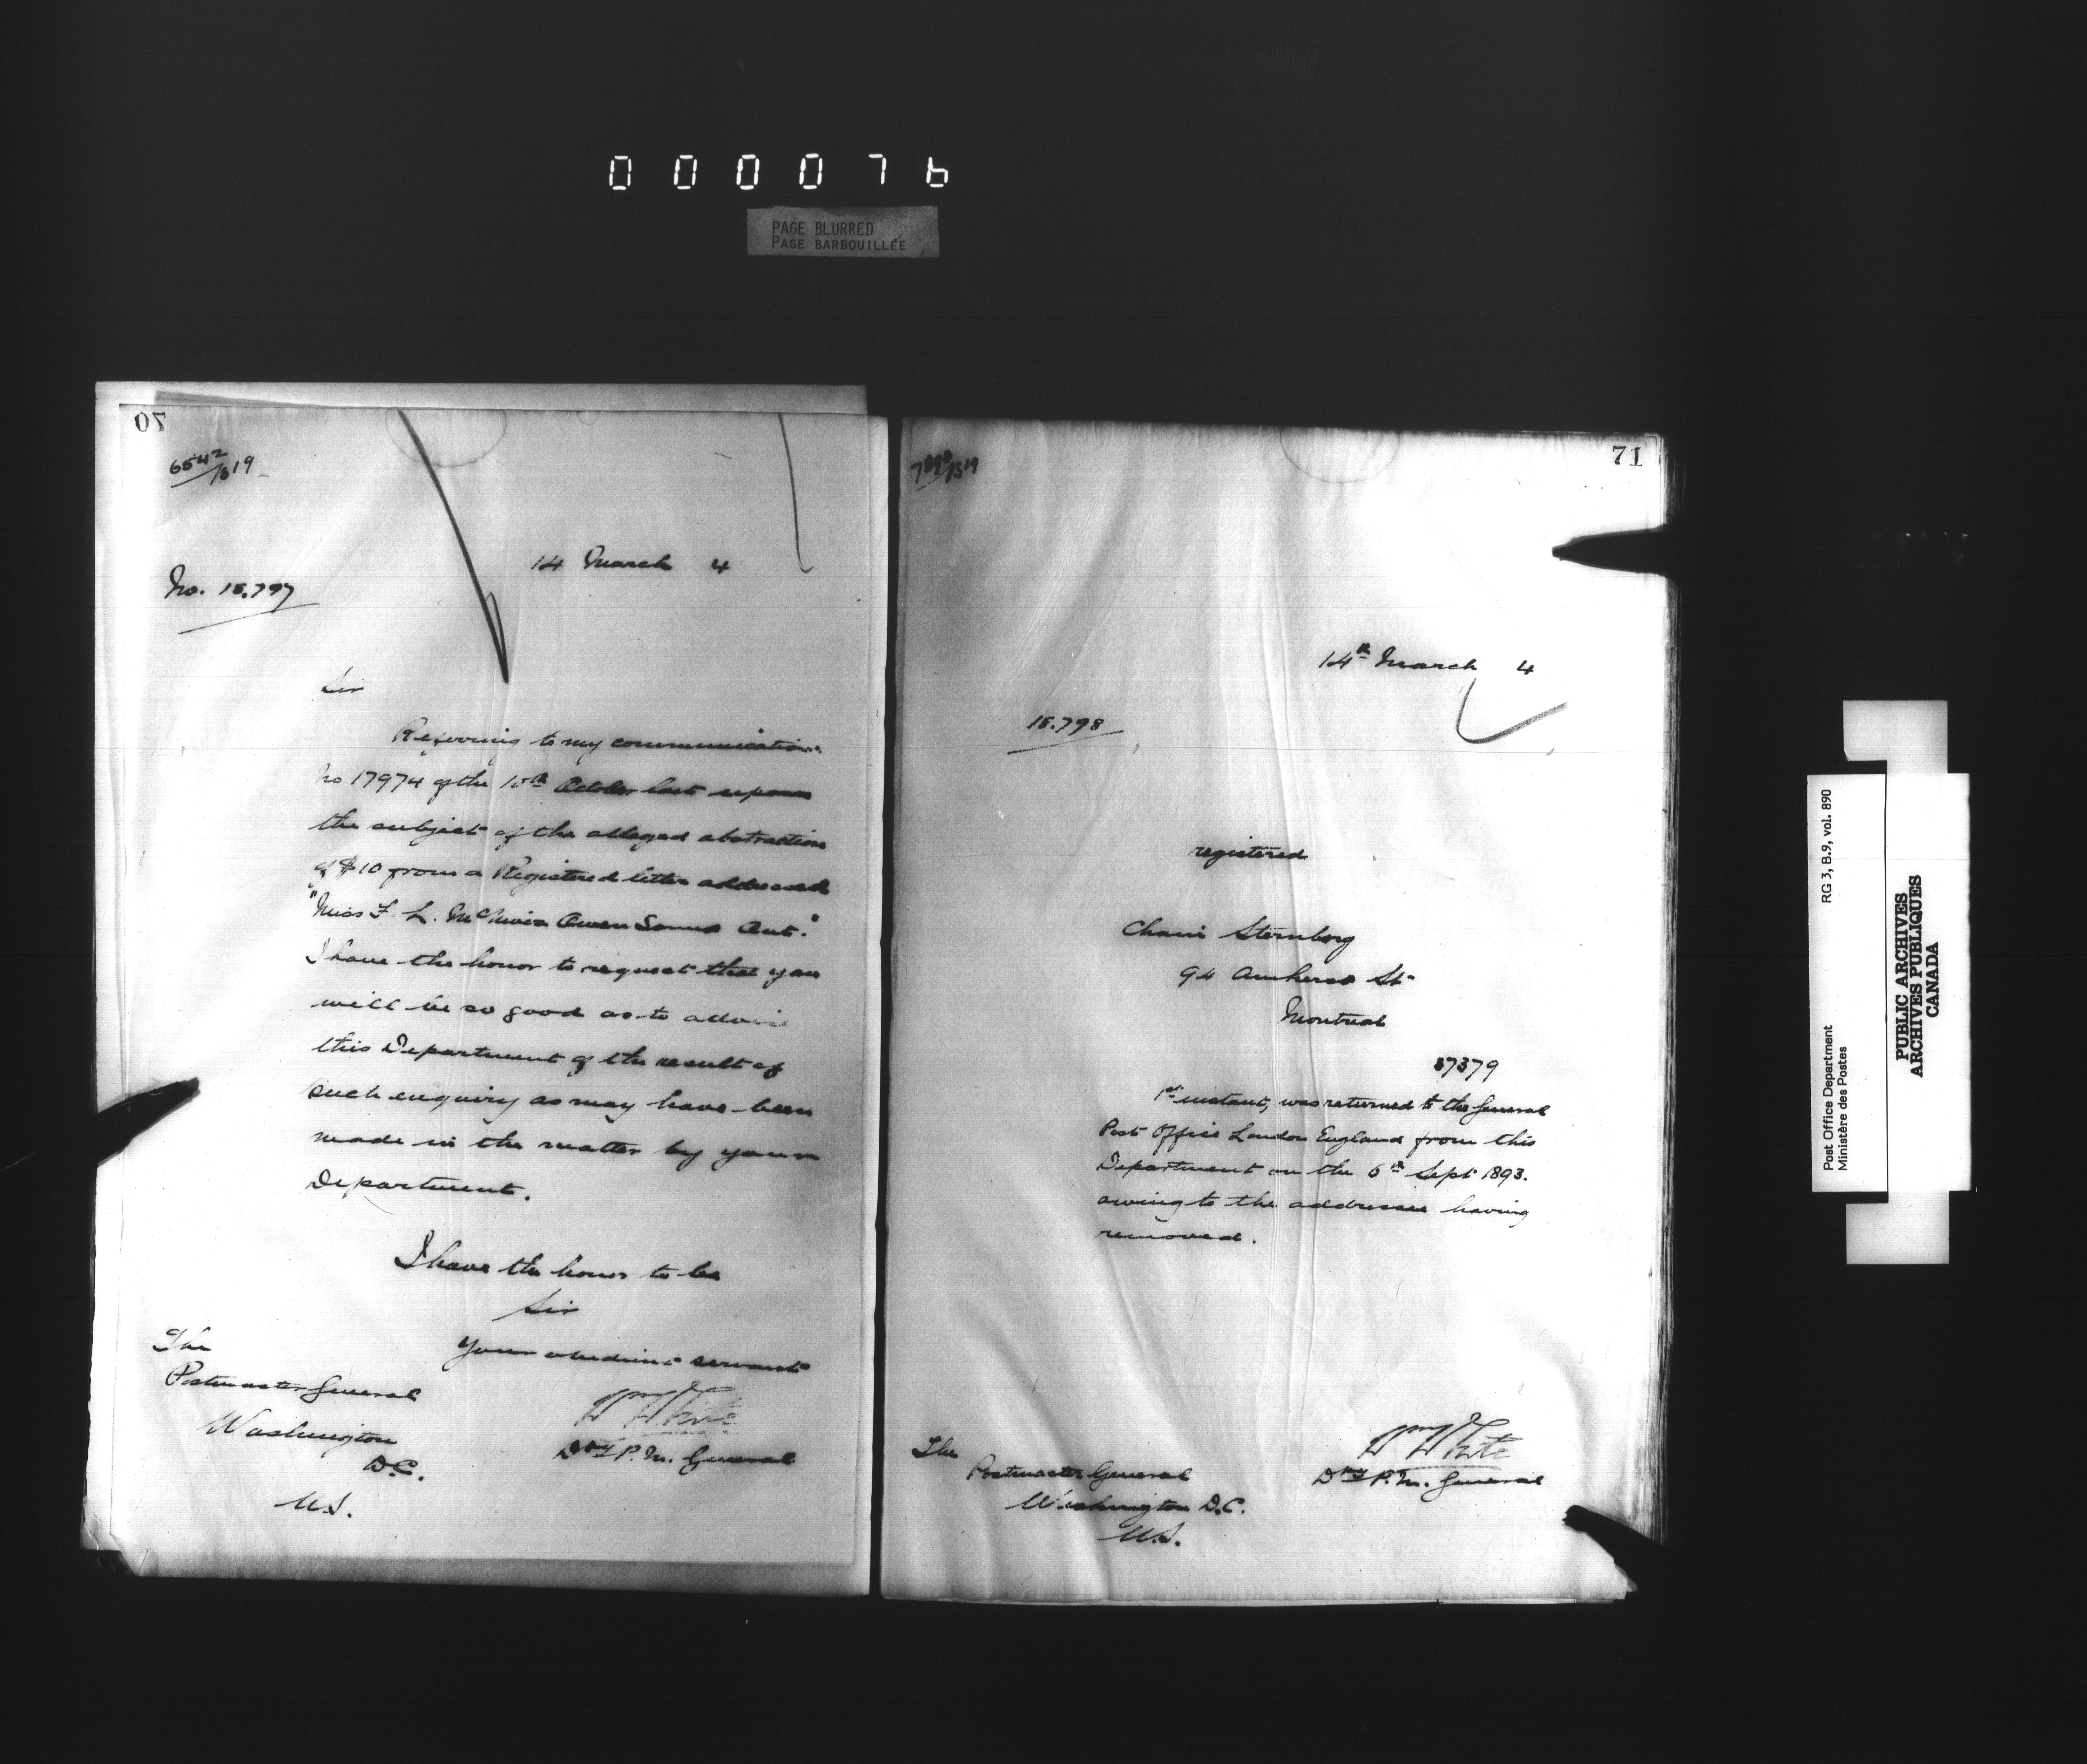 000076
PAGE BLURRED
PAGE BARBOUILLÉE
70
6542/B19
14 March 4
No. 15.797
Sir
Referring to my communication
No 17974 of the 10th October last upon
the subject of the alleged abstraction
of $10 from a Registered letter addressed
"Miss F. L. Owen Sound Ont."
I have the honor to request that you
will be so good as to advise
this Department of the result of
such enquiry as may have been
made in the matter by your
Department.
I have the honor to be
Sir
Your obedient servant
Wm White
Dpy P. M. General
The
Postmaster General
Washington
D.C.
U.S.
71
/B19
14th March 4
15.798
registered
Sternberg
94 Amherst St
Montreal
37379
1st instant, was returned to the General
Post Office London England from this
Department on the 6th Sept 1893.
owing to the addressee having
removed.
Wm White
Dpy P. M. General
The
Postmaster General
Washington D.C.
U.S.
Post Office Department
Ministère des Postes
RG 3, B.9, vol. 890
PUBLIC ARCHIVES
ARCHIVES PUBLIQUES
CANADA